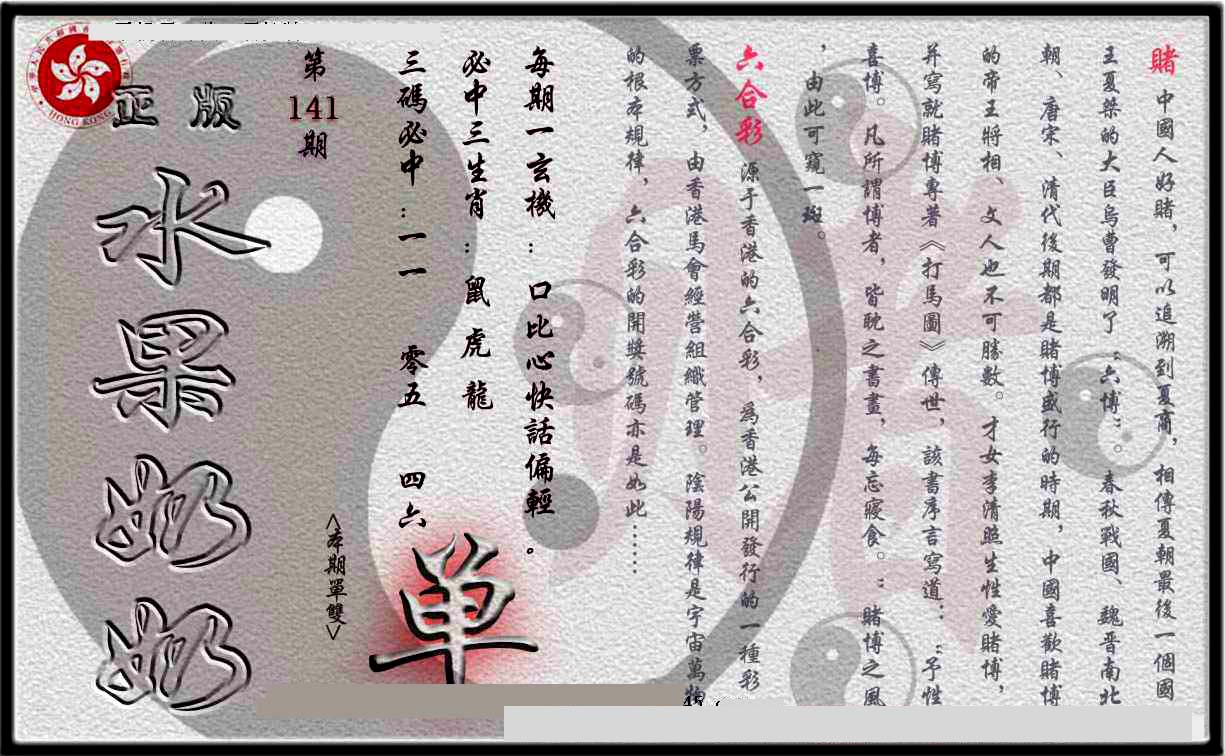 賭 中國人好賭，可以追溯到夏商，相傳夏朝最後一個國
王夏桀的大臣烏曹發明了“六博”。春秋戰國、魏晋南北
朝、唐宋、清代後期都是賭博盛行的時期，中國喜歡賭博
的帝王將相、文人也不可勝數。才女李清照生性愛賭博，
并寫就賭博專著《打馬圖》傳世，該書序言寫道：“予性
喜博。凡所謂博者，皆耽之書畫，每忘寢食。”賭博之風
，由此可窺一斑。
六合彩 源于香港的六合彩，爲香港公開發行的一種彩
票方式，由香港馬會經營組織管理。陰陽規律是宇宙萬物
的根本規律，六合彩的開獎號碼亦是如此……
每期一玄機：口比心快話偏輕。
必中三生肖：鼠 虎 龍
三碼必中：一一 零五 四六
单
<本期單雙>
第141期
正版
水果奶奶
HONG KONG